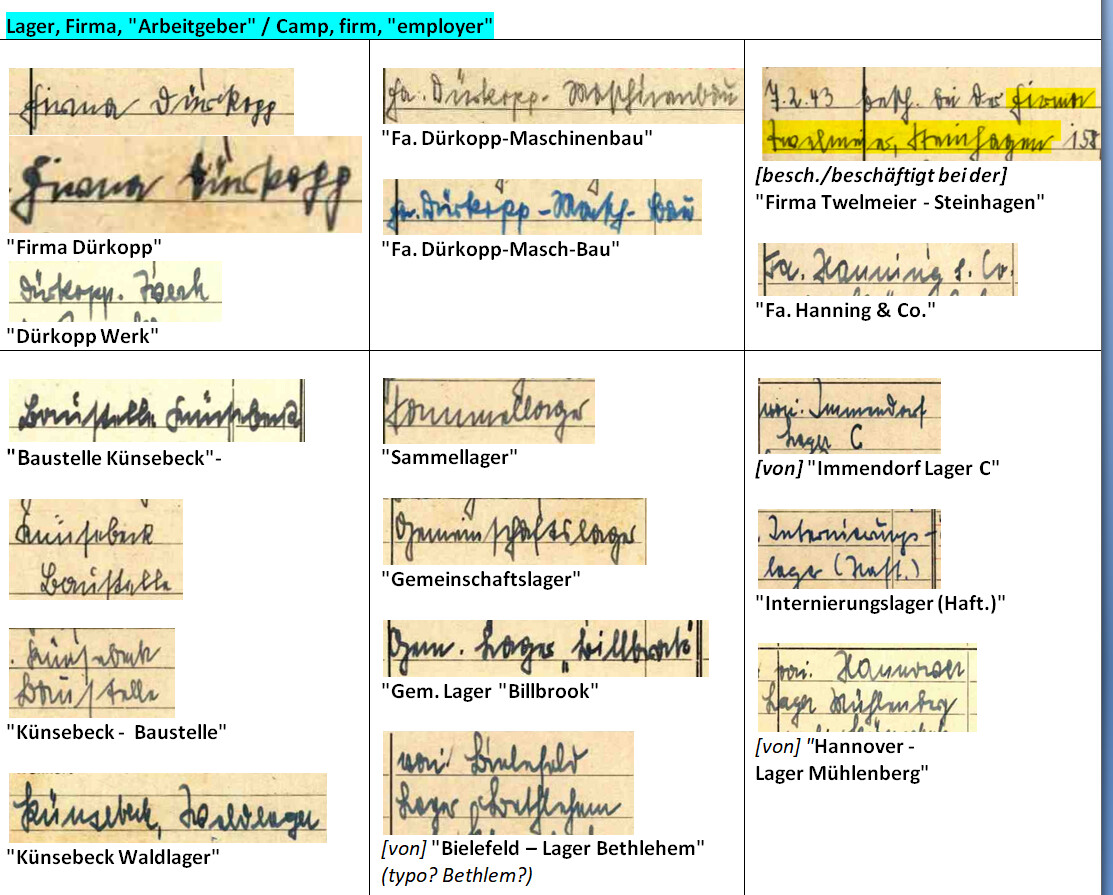 Lager, Firma, "Arbeitgeber" / Camp, firm, "employer"
Firma Dürkopp
Firma Dürkopp
"Firma Dürkopp"
Dürkopp. Werk
"Dürkopp Werk"
Fa. Dürkopp- Maschinenbau
"Fa. Dürkopp-Maschinenbau"
Fa. Dürkopp - Masch- Bau
"Fa. Dürkopp-Masch-Bau"
7.2.43 besch. bei der Firma
Twelmeier, Steinhagen 158
[besch./beschäftigt bei der]
"Firma Twelmeier - Steinhagen"
Fa. Hanning & Co.
"Fa. Hanning & Co."
Baustelle Künsebeck
"Baustelle Künsebeck"-
Künsebeck
Baustelle
Künsebeck
Baustelle
"Künsebeck - Baustelle"
Künsebeck, Waldlager
"Künsebeck Waldlager"
Sammellager
"Sammellager"
Gemeinschaftslager
"Gemeinschaftslager"
Gem. Lager „Billbrook"
"Gem. Lager "Billbrook"
von: Bielefeld
Lager Bethlehem
[von] "Bielefeld – Lager Bethlehem"
(typo? Bethlem?)
von: Immendorf
Lager C
[von] "Immendorf Lager C"
Internierungs-
lager (Haft.)
"Internierungslager (Haft.)"
von: Hannover
Lager Mühlenberg
[von] "Hannover -
Lager Mühlenberg"